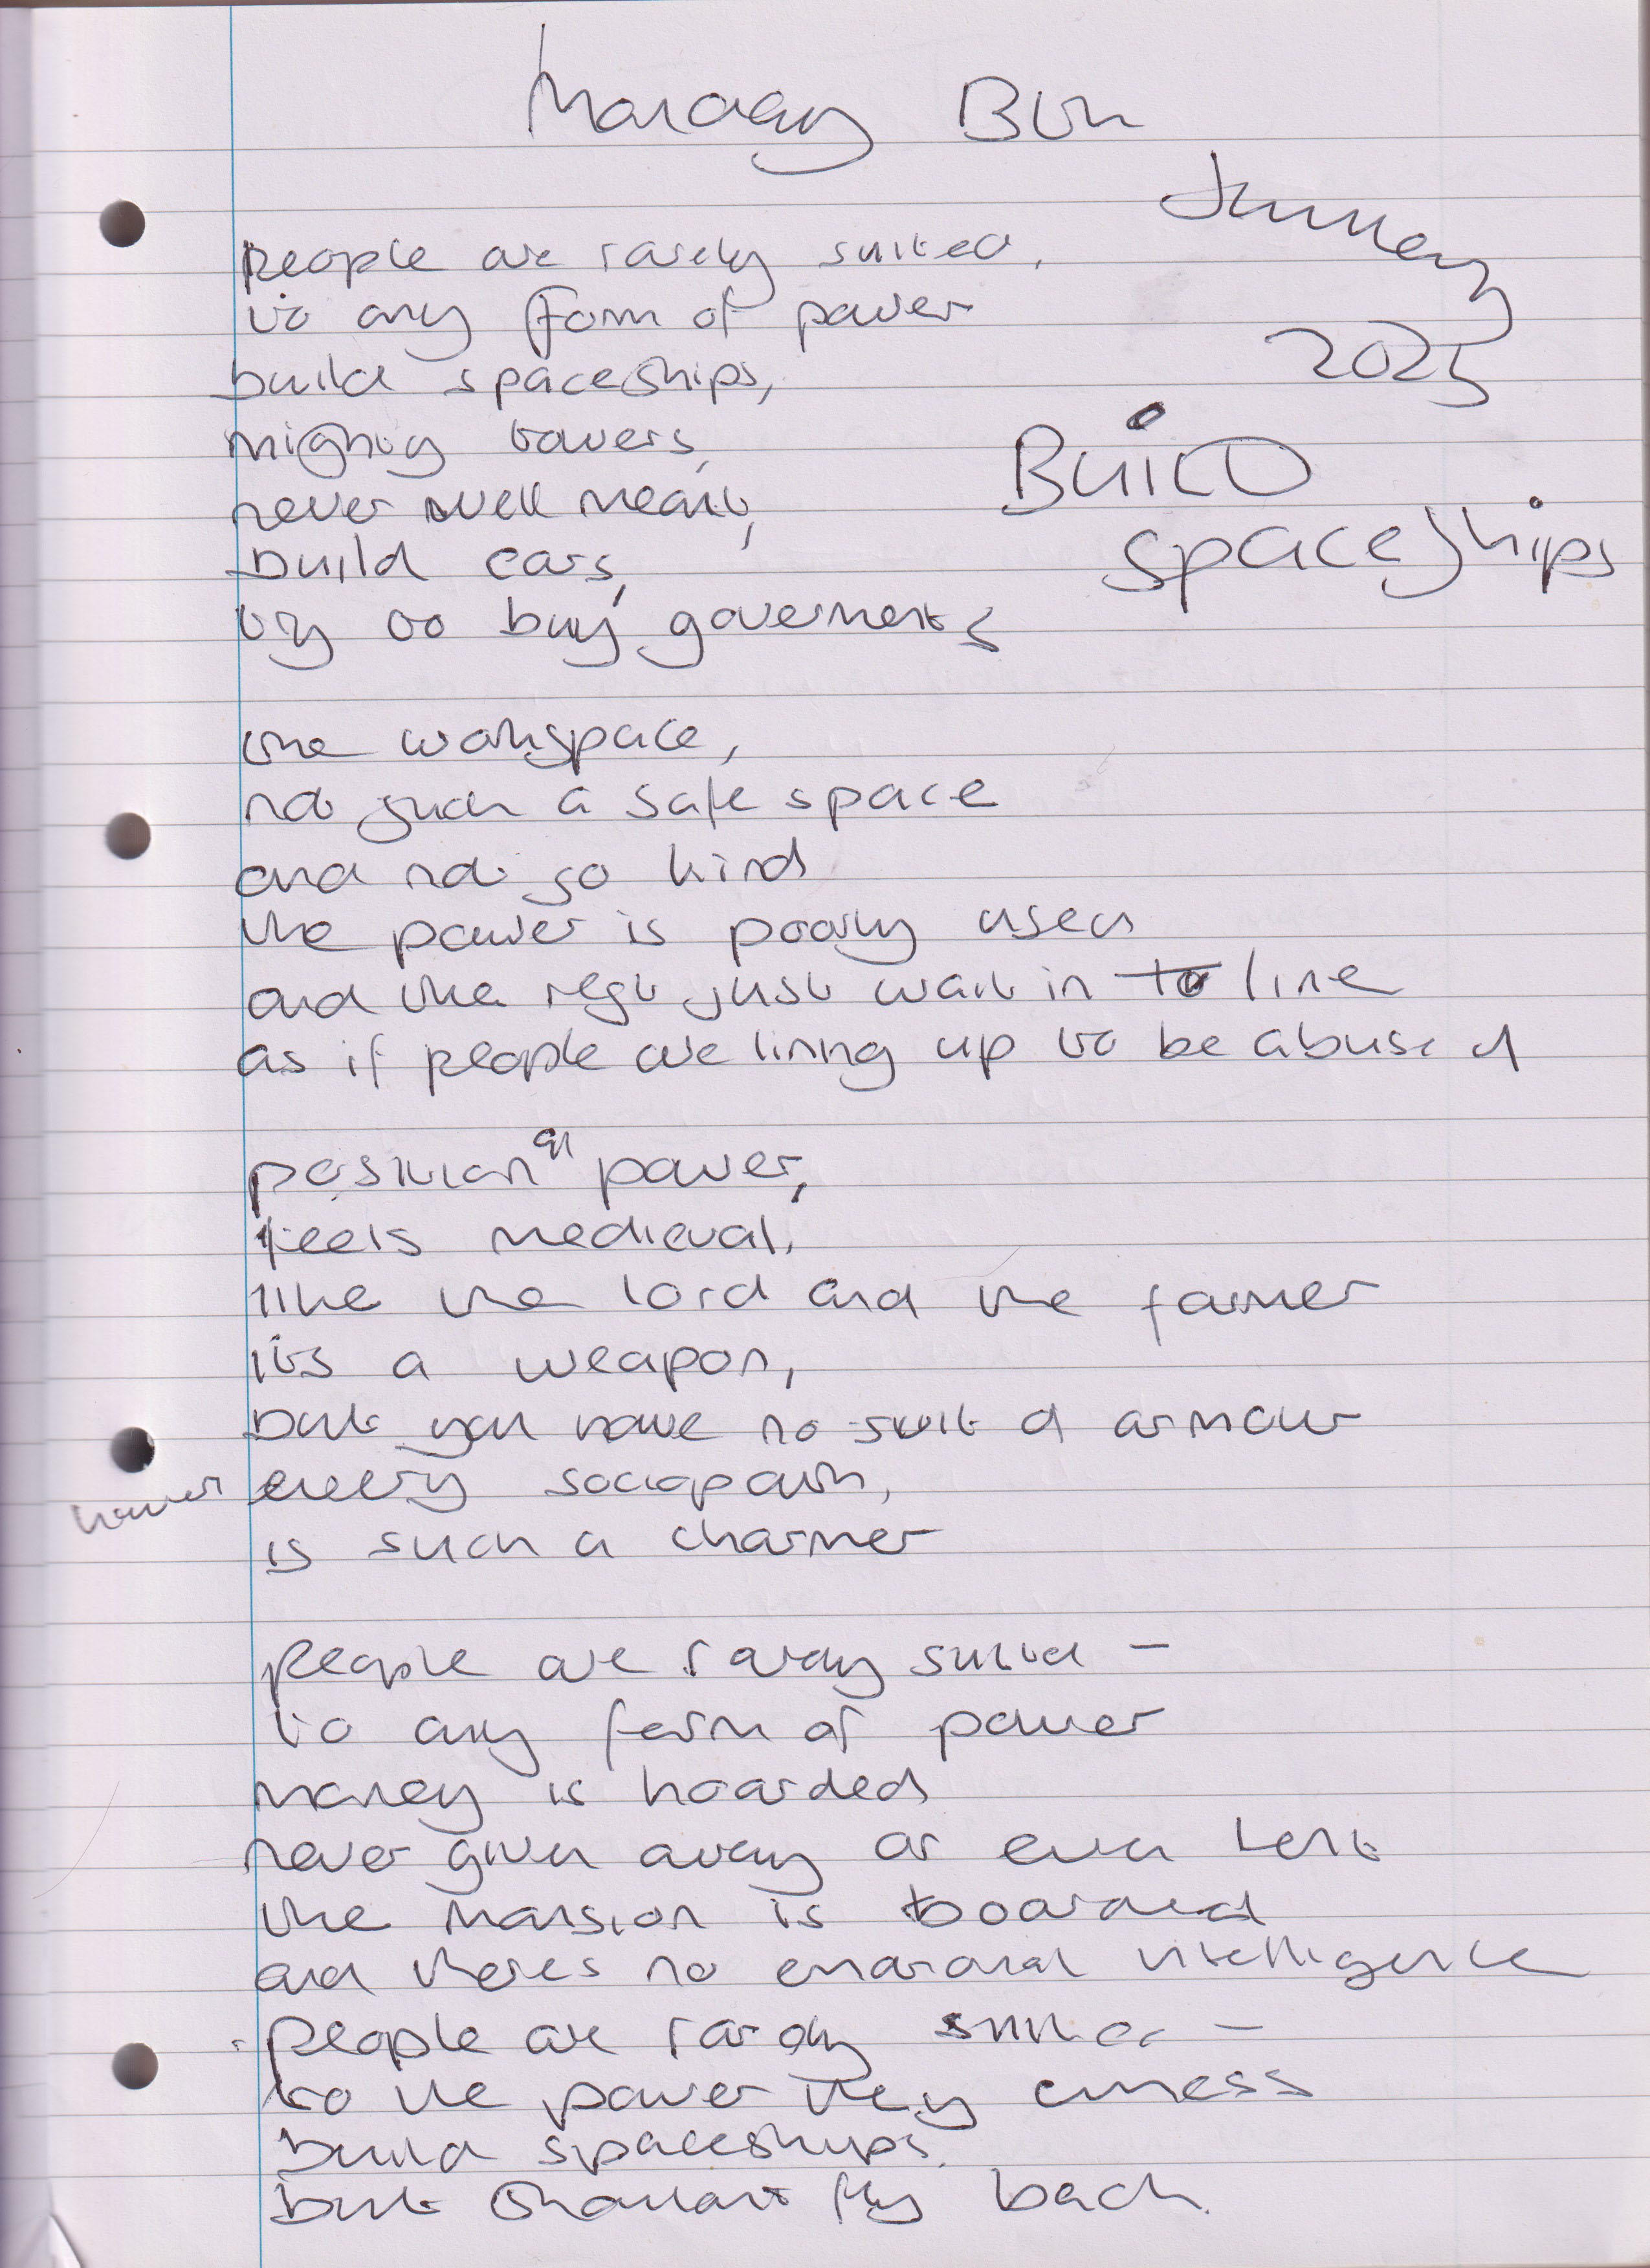 Monday 13th
January
2025
Build
spaceships
people are rarely suited,
to any form of power
build spaceships,
mighty towers,
never well meant,
build cars,
try to buy goverments
the workspace,
not such a safe space
and not so kind
the power is poorly used
and the rest just wait in to line
as if people are lining up to be abused
position of power,
feels medieval,
like the lord and the farmer
its a weapon,
but you have no suit of armour
every sociopath,
is such a charmer
people are rarely suited -
to any form of power
money is hoarded
never given away or even lent
the mansion is boarded
and theres no emotional intelligence
people are rarely suited -
to the power they amess
build spaceships,
but shouldnt fly back